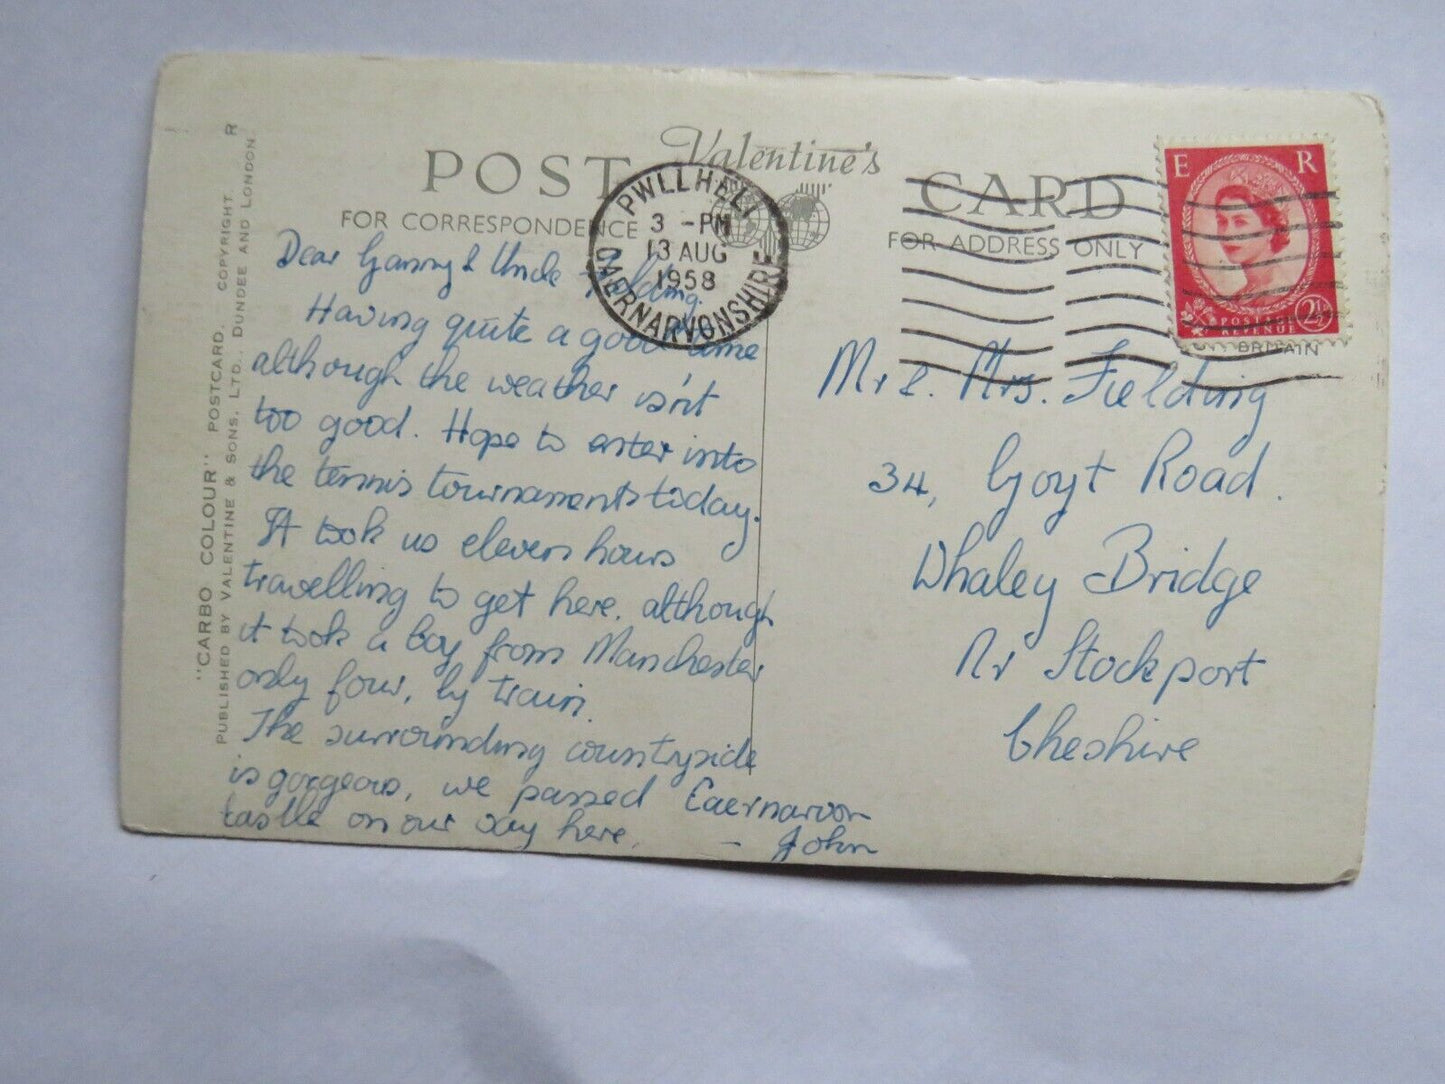 "CARBO COLOUR" POSTCARD. COPYRIGHT. R
PUBLISHED BY VALENTINE & SONS, LTD., DUNDEE AND LONDON
Valentine's
POST CARD
FOR CORRESPONDENCE
FOR ADDRESS ONLY
PWLLHELI
3 - PM
13 AUG
1958
CAERNARVONSHIRE
E R
POSTAGE
REVENUE
2½
BRITAIN
Dear Granny & Uncle Fielding,
Having quite a good time
although the weather isn't
too good. Hope to enter into
the tennis tournaments today.
It took us eleven hours
travelling to get here, although
it took a boy from Manchester
only four, by train.
The surrounding countryside
is gorgeous, we passed Caernarvon
Castle on our way here.
- John
Mr & Mrs. Fielding
34, Goyt Road.
Whaley Bridge
Nr Stockport
Cheshire